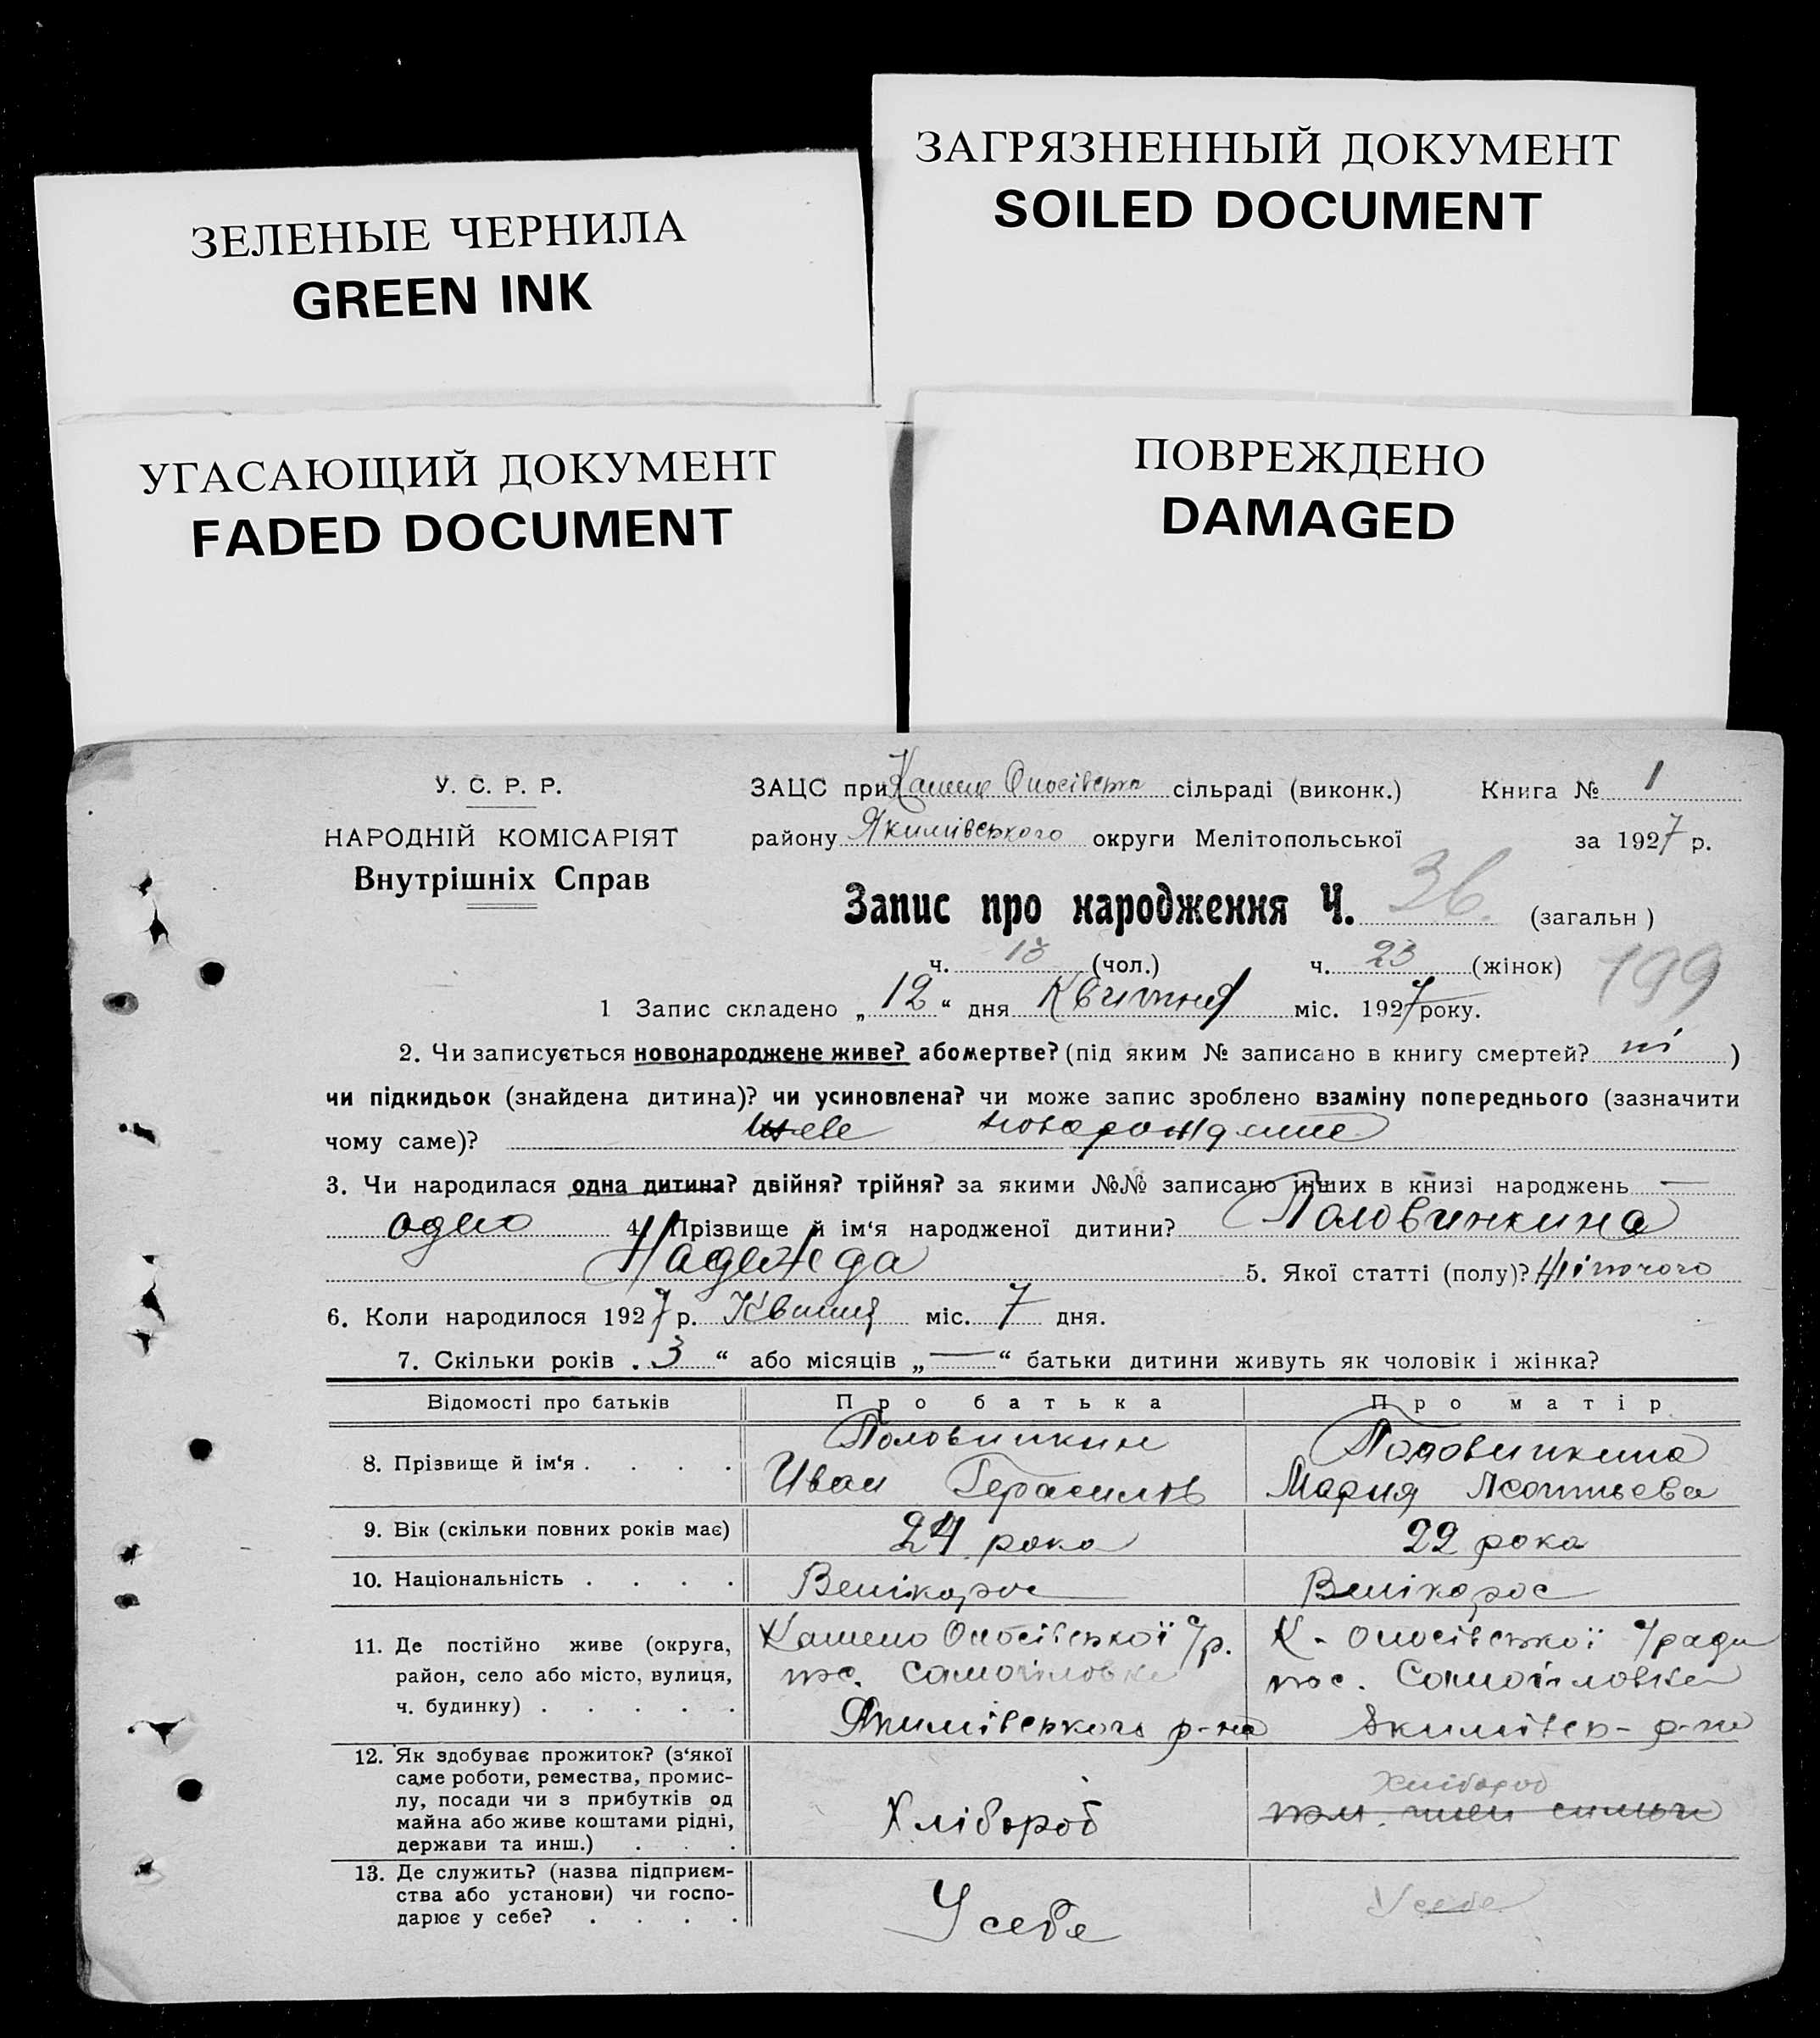 ЗАГРЯЗНЕННЫЙ ДОКУМЕНТ
SOILED DOCUMENT
ЗЕЛЕНЫЕ ЧЕРНИЛА
GREEN INK
УГАСАЮЩИЙ ДОКУМЕНТ
FADED DOCUMENT
ПОВРЕЖДЕНО
DAMAGED
У. С. Р. Р.
НАРОДНІЙ КОМІСАРІЯТ
Внутрішніх Справ
ЗАЦС при сільраді (виконк.) Книга № 1
району Якимівського округи Мелітопольської за 1927 р.
Запис про народження Ч. 36. (загальн)
ч. 13 (чол.) ч. 23 (жінок)
199
1 Запис складено „12“ дня Квитня міс. 1927 року.
2. Чи записується новонароджене живе? або мертве? (під яким № записано в книгу смертей? ні)
чи підкидьок (знайдена дитина)? чи усиновлена? чи може запис зроблено взаміну попереднього (зазначити
чому саме)?
3. Чи народилася одна дитина? двійня? трійня? за якими №№ записано інших в книзі народжень —
одно 4. Прізвище й ім‘я народженої дитини? Половинкина
Надежда 5. Якої статті (полу)? Жіночого
6. Коли народилося 1927 р. міс. 7 дня.
7. Скільки років „3“ або місяців „—“ батьки дитини живуть як чоловік і жінка?
Відомості про батьків Про батька Про матір
8. Прізвище й ім‘я . . . . Половинкин Иван Герасимов Половинкина Мария Леонтьева
9. Вік (скільки повних років має) 24 рока 22 рока
10. Національність . . . . Велікорос Велікорос
11. Де постійно живе (округа, район, село або місто, вулиця, ч. будинку) . . . . . Якимівського р-на
12. Як здобуває прожиток? (з‘якої саме роботи, ремества, промислу, посади чи з прибутків од майна або живе коштами рідні, держави та инш.) . . . Хлібороб Хлібороб
13. Де служить? (назва підприємства або установи) чи господарює у себе? . . . . У себе У себе